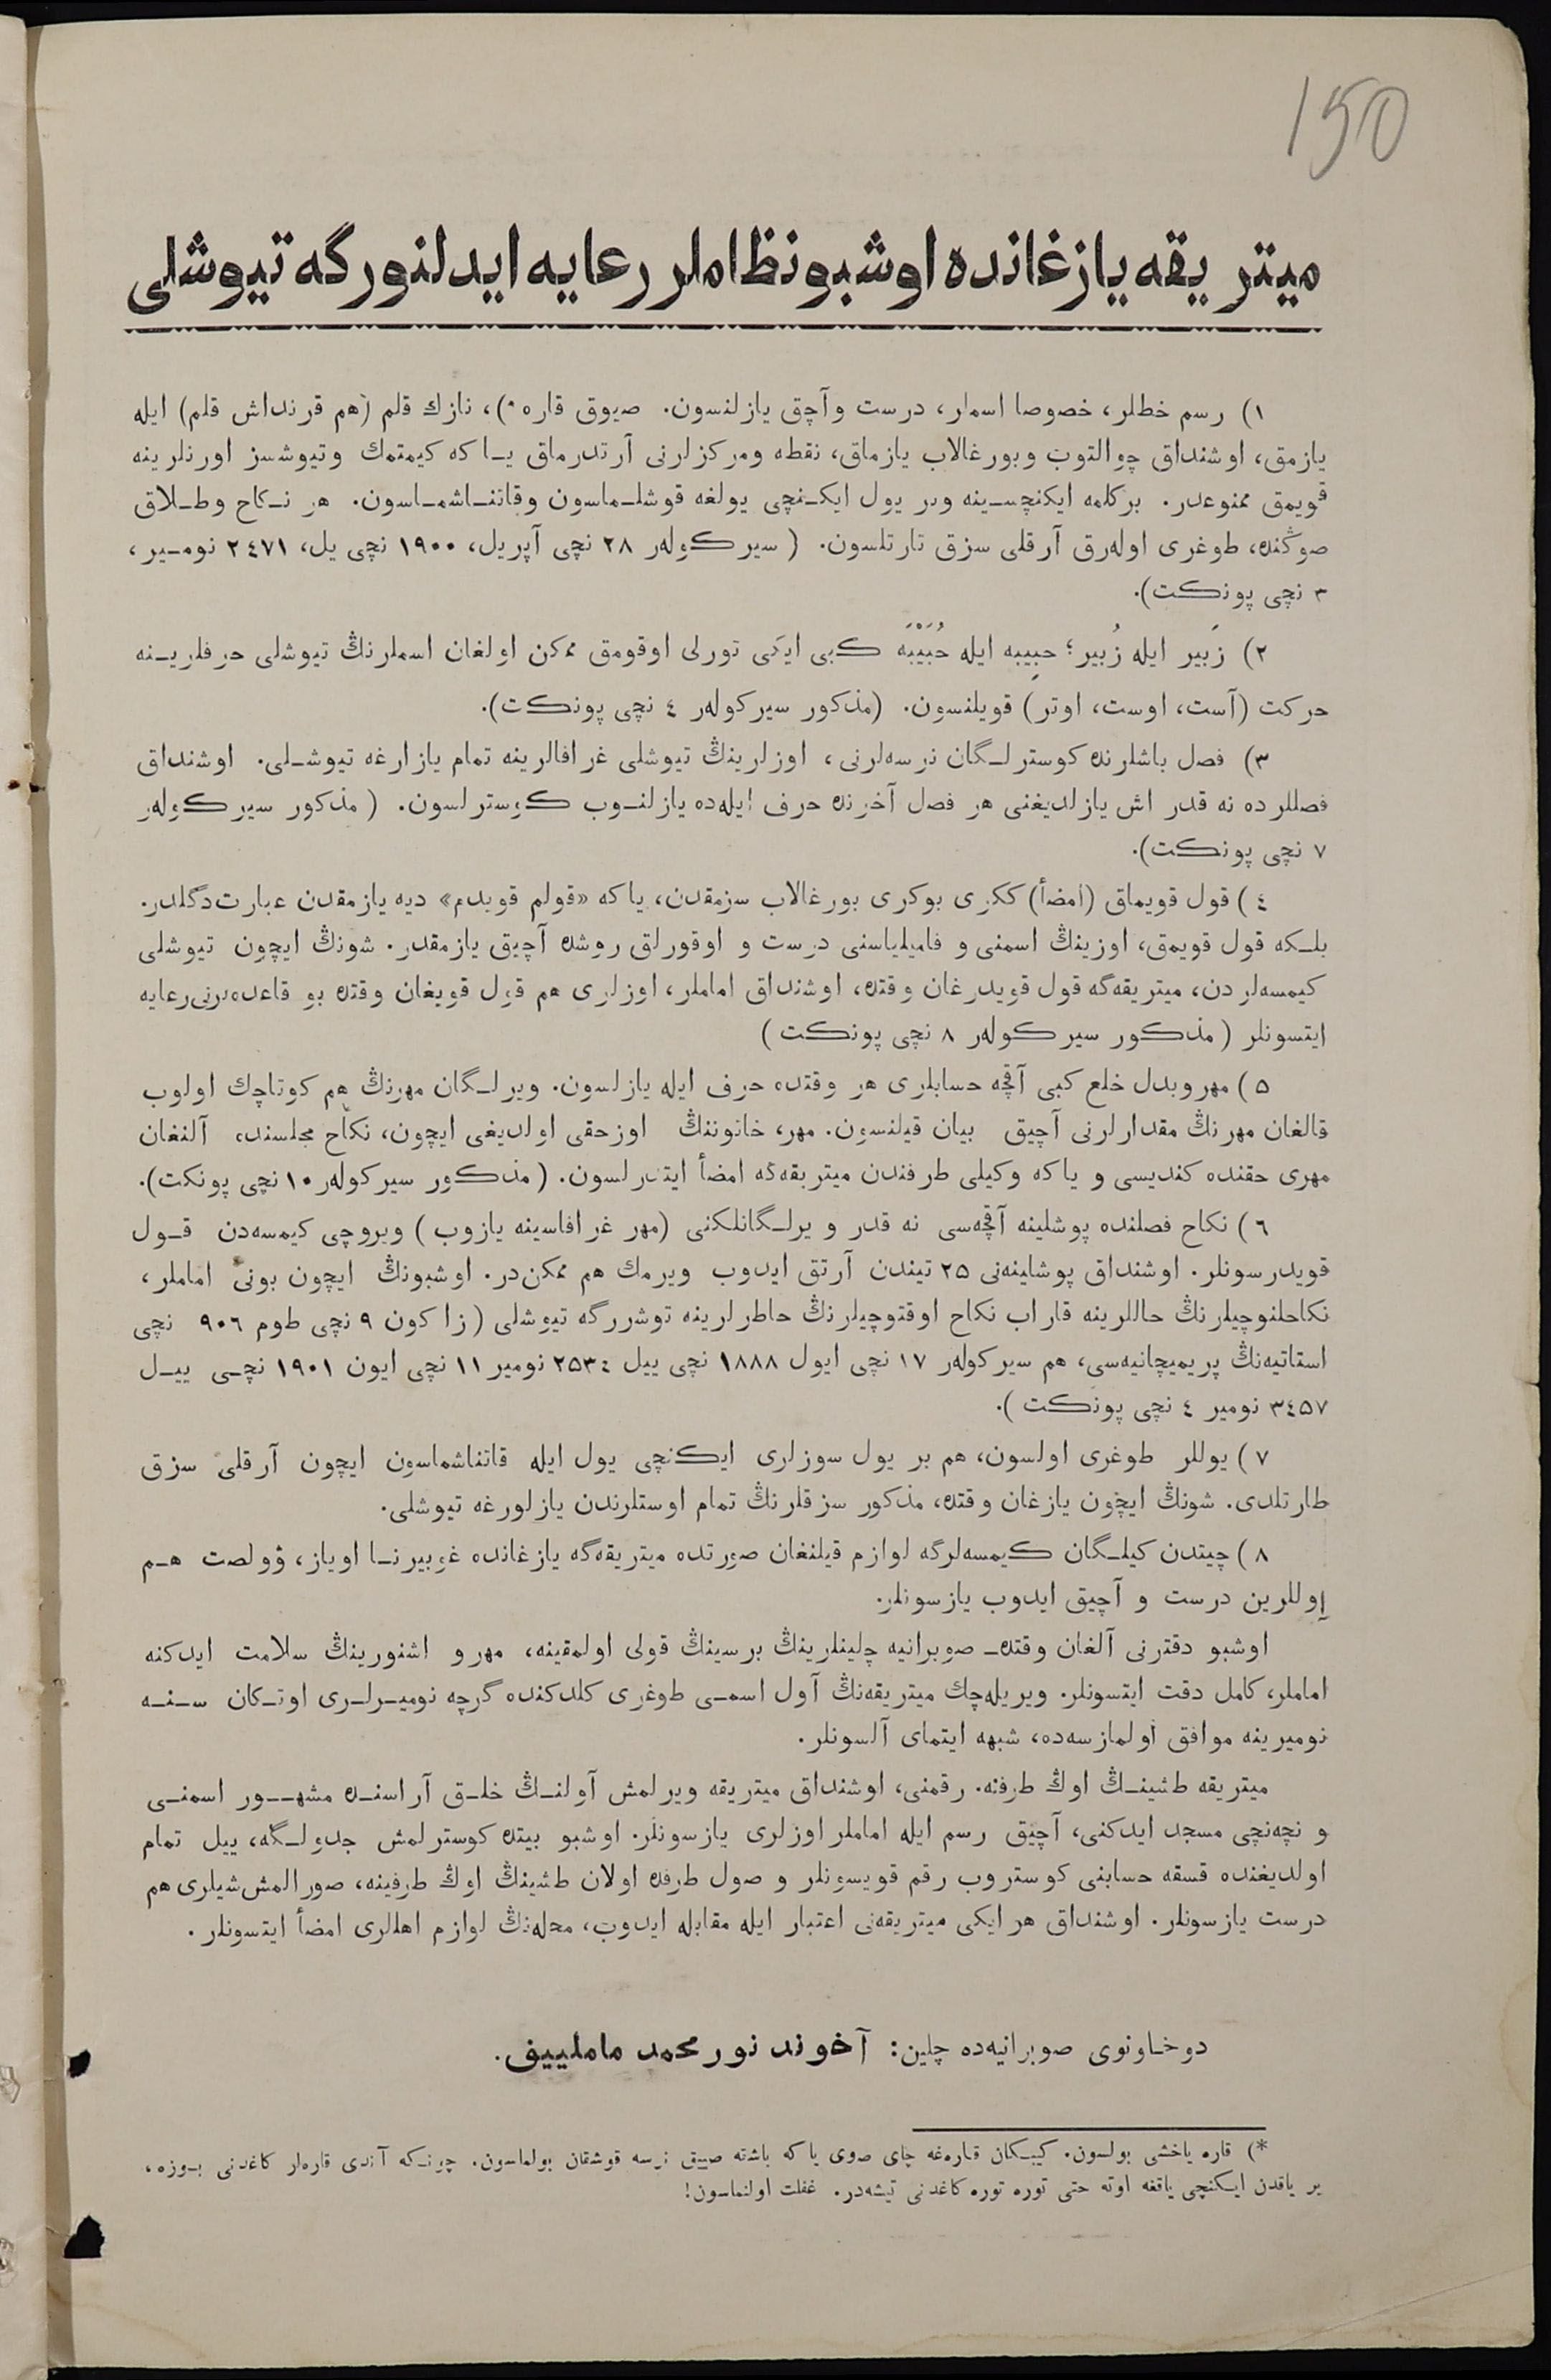 150
ميتريقه يازغانده اوشبو نظاملر رعايه ايدلنورگه تيوشلى
١) رسم خطلر، خصوصا اسملر، درست وآچق يازلنسون. صيوق قاره *)، نازك قلم (هم قرنداش قلم) ايله
يازمق، اوشنداق چوالتوب وبورغالاب يازماق، نقطه ومركزلرنى آرتدرماق يـا كه كيمتمك وتيوشسز اورنلرينه
قويمق ممنوعدر. بركلمه ايكنچسـينه وبر يول ايكـنچى يولغه قوشلـماسون وقاتنـاشمـاسون. هر نـكاح وطـلاق
صوڭنده، طوغرى اولەرق آرقلى سزق تارتلسون. (سيركولەر ٢٨ نچى آپريل، ١٩٠٠ نچى يل، ٢٤٧١ نومـير،
٣ نچى پونكت).
٢) زَبير ايله زُبير؛ حبِيبه ايله حُبَيْبَه كبى ايكى تورلى اوقومق ممكن اولغان اسملرنڭ تيوشلى حرفلريـنه
حركت (آست، اوست، اوتر) قويلنسون. (مذكور سيركولەر ٤ نچى پونكت).
٣) فصل باشلرنده كوسترلـگان نرسەلرنى، اوزلرينڭ تيوشلى غرافالرينه تمام يازارغه تيوشـلى. اوشنداق
فصللرده نه قدر اش يازلديغنى هر فصل آخرنده حرف ايلەده يازلنـوب كوسترلسون. (مذكور سيركولەر
٧ نچى پونكت).
٤) قول قويماق (امضأ) ككرى بوكرى بورغالاب سزمقدن، ياكه «قولم قويدم» ديه يازمقدن عبارت دگلدر.
بلـكه قول قويمق، اوزينڭ اسمنى و فاميلياسنى درست و اوقورلق روشده آچيق يازمقدر. شونڭ ايچون تيوشلى
كيمسەلردن، ميتريقەگه قول قويدرغان وقتده، اوشنداق اماملر، اوزلرى هم قول قويغان وقتده بو قاعدەلرنى رعايه
ايتسونلر (مذكور سيركولەر ٨ نچى پونكت)
٥) مهر وبدل خلع كبى آقچه حسابلرى هر وقتده حرف ايله يازلسون. ويرلـگان مهرنڭ هم كوتاچك اولوب
قالغان مهرنڭ مقدارلرنى آچيق بيان قيلنسون. مهر، خاتوننڭ اوز حقى اولديغى ايچون، نكاح مجلسنده آلنغان
مهرى حقنده كنديسى و ياكه وكيلى طرفندن ميتريقەگه امضأ ايتدرلسون. (مذكور سيركولەر ١٠ نچى پونكت).
٦) نكاح فصلنده پوشلينه آقچەسى نه قدر ويرلـگانلكنى (مهر غرافاسينه يازوب) ويروچى كيمسەدن قـول
قويدرسونلر. اوشنداق پوشلينەنى ٢٥ تيندن آرتق ايدوب ويرمك هم ممكن در. اوشبونڭ ايچون بونى اماملر،
نكاحلنوچيلرنڭ حاللرينه قاراب نكاح اوقتوچيلرنڭ خاطرلرينه توشررگه تيوشلى (زاكون ٩ نچى طوم ٩٠٦ نچى
استاتيەنڭ پريميچانيەسى، هم سيركولەر ١٧ نچى ايول ١٨٨٨ نچى ييل ٢٥٣٤ نومير ١١ نچى ايون ١٩٠١ نچـى ييـل
٣٤٥٧ نومير ٤ نچى پونكت).
٧) يوللر طوغرى اولسون، هم بر يول سوزلرى ايكنچى يول ايله قاتناشماسون ايچون آرقلى سزق
طارتلدى. شونڭ ايچون يازغان وقتده، مذكور سزقلرنڭ تمام اوستلرندن يازلورغه تيوشلى.
٨) چيتدن كيلـگان كيمسەلرگه لوازم قيلنغان صورتده ميتريقەگه يازغانده غوبيرنـا اوياز، ۋولصت هـم
اوللرين درست و آچيق ايدوب يازسونلر.
اوشبو دفترنى آلغان وقتده صوبرانيه چلينلرينڭ برسينڭ قولى اولمقينه، مهر و اشنورينڭ سلامت ايدكنه
اماملر، كامل دقت ايتسونلر. ويريلەچك ميتريقەنڭ آول اسمـى طوغرى كلدكنده گرچه نوميـرلـرى اوتـكان سـنـه
نوميرينه موافق اولمازسەده، شبهه ايتماى آلسونلر.
ميتريقه طشينـڭ اوڭ طرفنه. رقمنى، اوشنداق ميتريقه ويرلمش آولنـڭ خلـق آراسنـده مشهــور اسمنـى
و نچەنچى مسجد ايدكنى، آچيق رسم ايله اماملر اوزلرى يازسونلر. اوشبو بيتده كوسترلمش جدولـگه، ييل تمام
اولديغنده قسقه حسابنى كوستروب رقم قويسونلر و صول طرفده اولان طشينڭ اوڭ طرفينه، صورالمش شيلرى هم
درست يازسونلر. اوشنداق هر ايكى ميتريقەنى اعتبار ايله مقابله ايدوب، محلەنڭ لوازم اهللرى امضأ ايتسونلر.
دوخاونوى صوبرانيەده چلين: آخوند نورمحمد ماملييف.
*) قاره ياخشى بولسون. كيبـكان قارەغه چاى صوى ياكه باشته صييق نرسه قوشقان بولماسون. چونـكه آندى قارەلر كاغدنى بـوزه،
بر ياقدن ايـكنچى ياققه اوته حتى توره توره كاغدنى تيشەدر. غفلت اولنماسون!